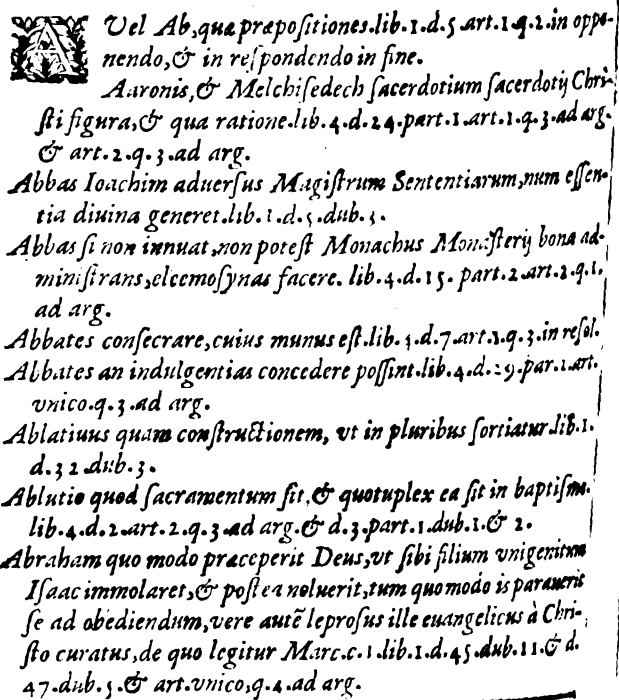 A Vel Ab, quæ præpositiones. lib. 1. d. 5. art. 1. q. 2. in oppo-
nendo, & in respondendo in fine.
Aaronis, & Melchisedech sacerdotium sacerdotij Chri-
sti figura, & qua ratione. lib. 4. d. 24. part. 1. art. 1. q. 3. ad arg.
& art. 2. q. 3. ad arg.
Abbas Ioachim aduersus Magistrum Sententiarum, num essen-
tia diuina generet. lib. 1. d. 5. dub. 3.
Abbas si non innuat, non potest Monachus Monasterij bona ad-
ministrans, eleemosynas facere. lib. 4. d. 15. part. 2. art. 2. q. 1.
ad arg.
Abbates consecrare, cuius munus est. lib. 4. d. 7. art. 1. q. 3. in resol.
Abbates an indulgentias concedere possint. lib. 4. d. 29. par. 1. art.
vnico. q. 3. ad arg.
Ablatiuus quam constructionem, vt in pluribus sortiatur. lib. 1.
d. 32. dub. 3.
Ablutio quod sacramentum sit, & quotuplex ea sit in baptismo.
lib. 4. d. 2. art. 2. q. 3. ad arg. & d. 3. part. 1. dub. 1. & 2.
Abraham quo modo præceperit Deus, vt sibi filium vnigenitum
Isaac immolaret, & postea noluerit, tum quomodo is parauerit
se ad obediendum, vere autē leprosus ille euangelicus à Chri-
sto curatus, de quo legitur Marc. c. 1. lib. 1. d. 45. dub. 11. & d.
47. dub. 5. & art. vnico, q. 4. ad arg.